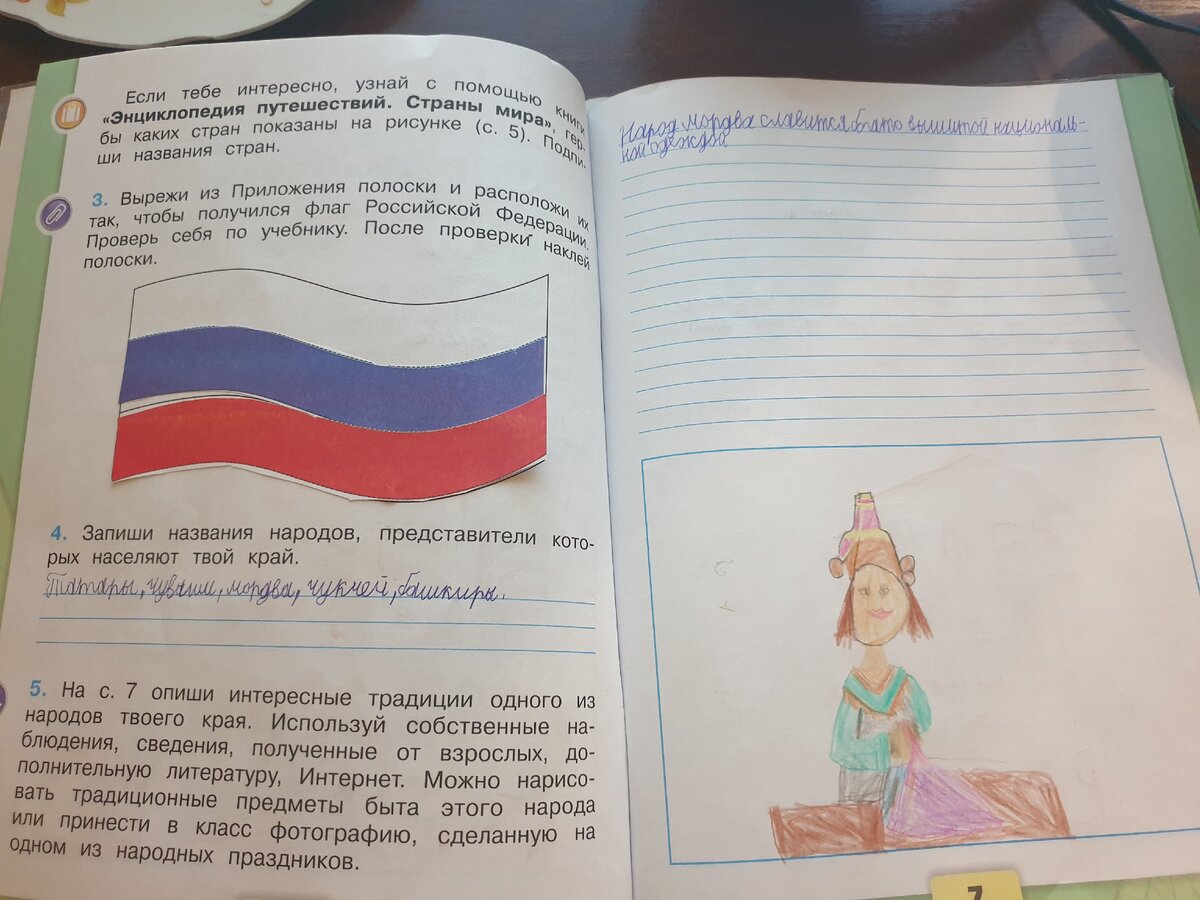 Если тебе интересно, узнай с помощью книги
«Энциклопедия путешествий. Страны мира», гер-
бы каких стран показаны на рисунке (с. 5). Подпи-
ши названия стран.
3. Вырежи из Приложения полоски и расположи их
так, чтобы получился флаг Российской Федерации.
Проверь себя по учебнику. После проверки наклей
полоски.
4. Запиши названия народов, представители кото-
рых населяют твой край.
Татары, чуваши, мордва, чукчей, башкиры.
5. На с. 7 опиши интересные традиции одного из
народов твоего края. Используй собственные на-
блюдения, сведения, полученные от взрослых, до-
полнительную литературу, Интернет. Можно нарисо-
вать традиционные предметы быта этого народа
или принести в класс фотографию, сделанную на
одном из народных праздников.
Народ мордва славится богато вышитой националь-
ной одеждой
7